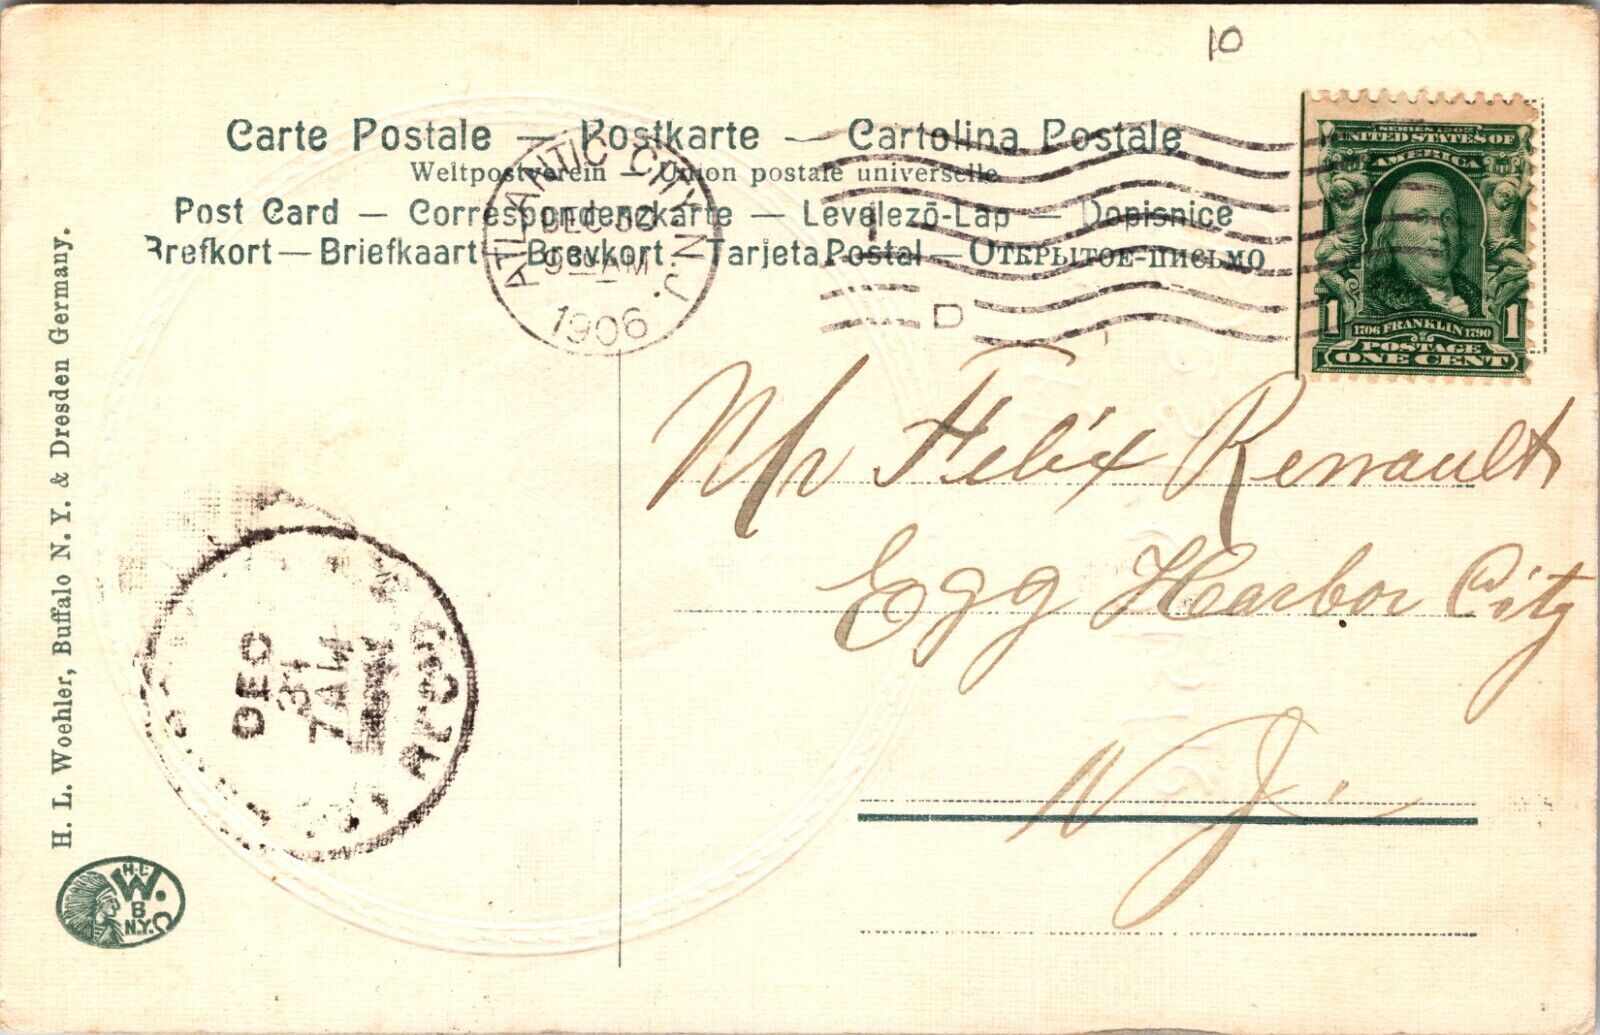 10
Carte Postale — Postkarte — Cartolina Postale
Weltpostverein — Union postale universelle
Post Card — Correspondenzkarte — Levelező-Lap — Dopisnice
Brefkort — Briefkaart — Brevkort — Tarjeta Postal — Открытое-письмо
ATLANTIC CITY N.J.
DEC 30
9 30 AM
1906
D
UNITED STATES OF
AMERICA
1706 FRANKLIN 1790
1 1
POSTAGE
ONE CENT
Mr Felix Renault
Egg Harbor City
N.J.
DEC
31
7 AM
H. L. Woehler, Buffalo N. Y. & Dresden Germany.
H.L.
W.
B
N.Y.